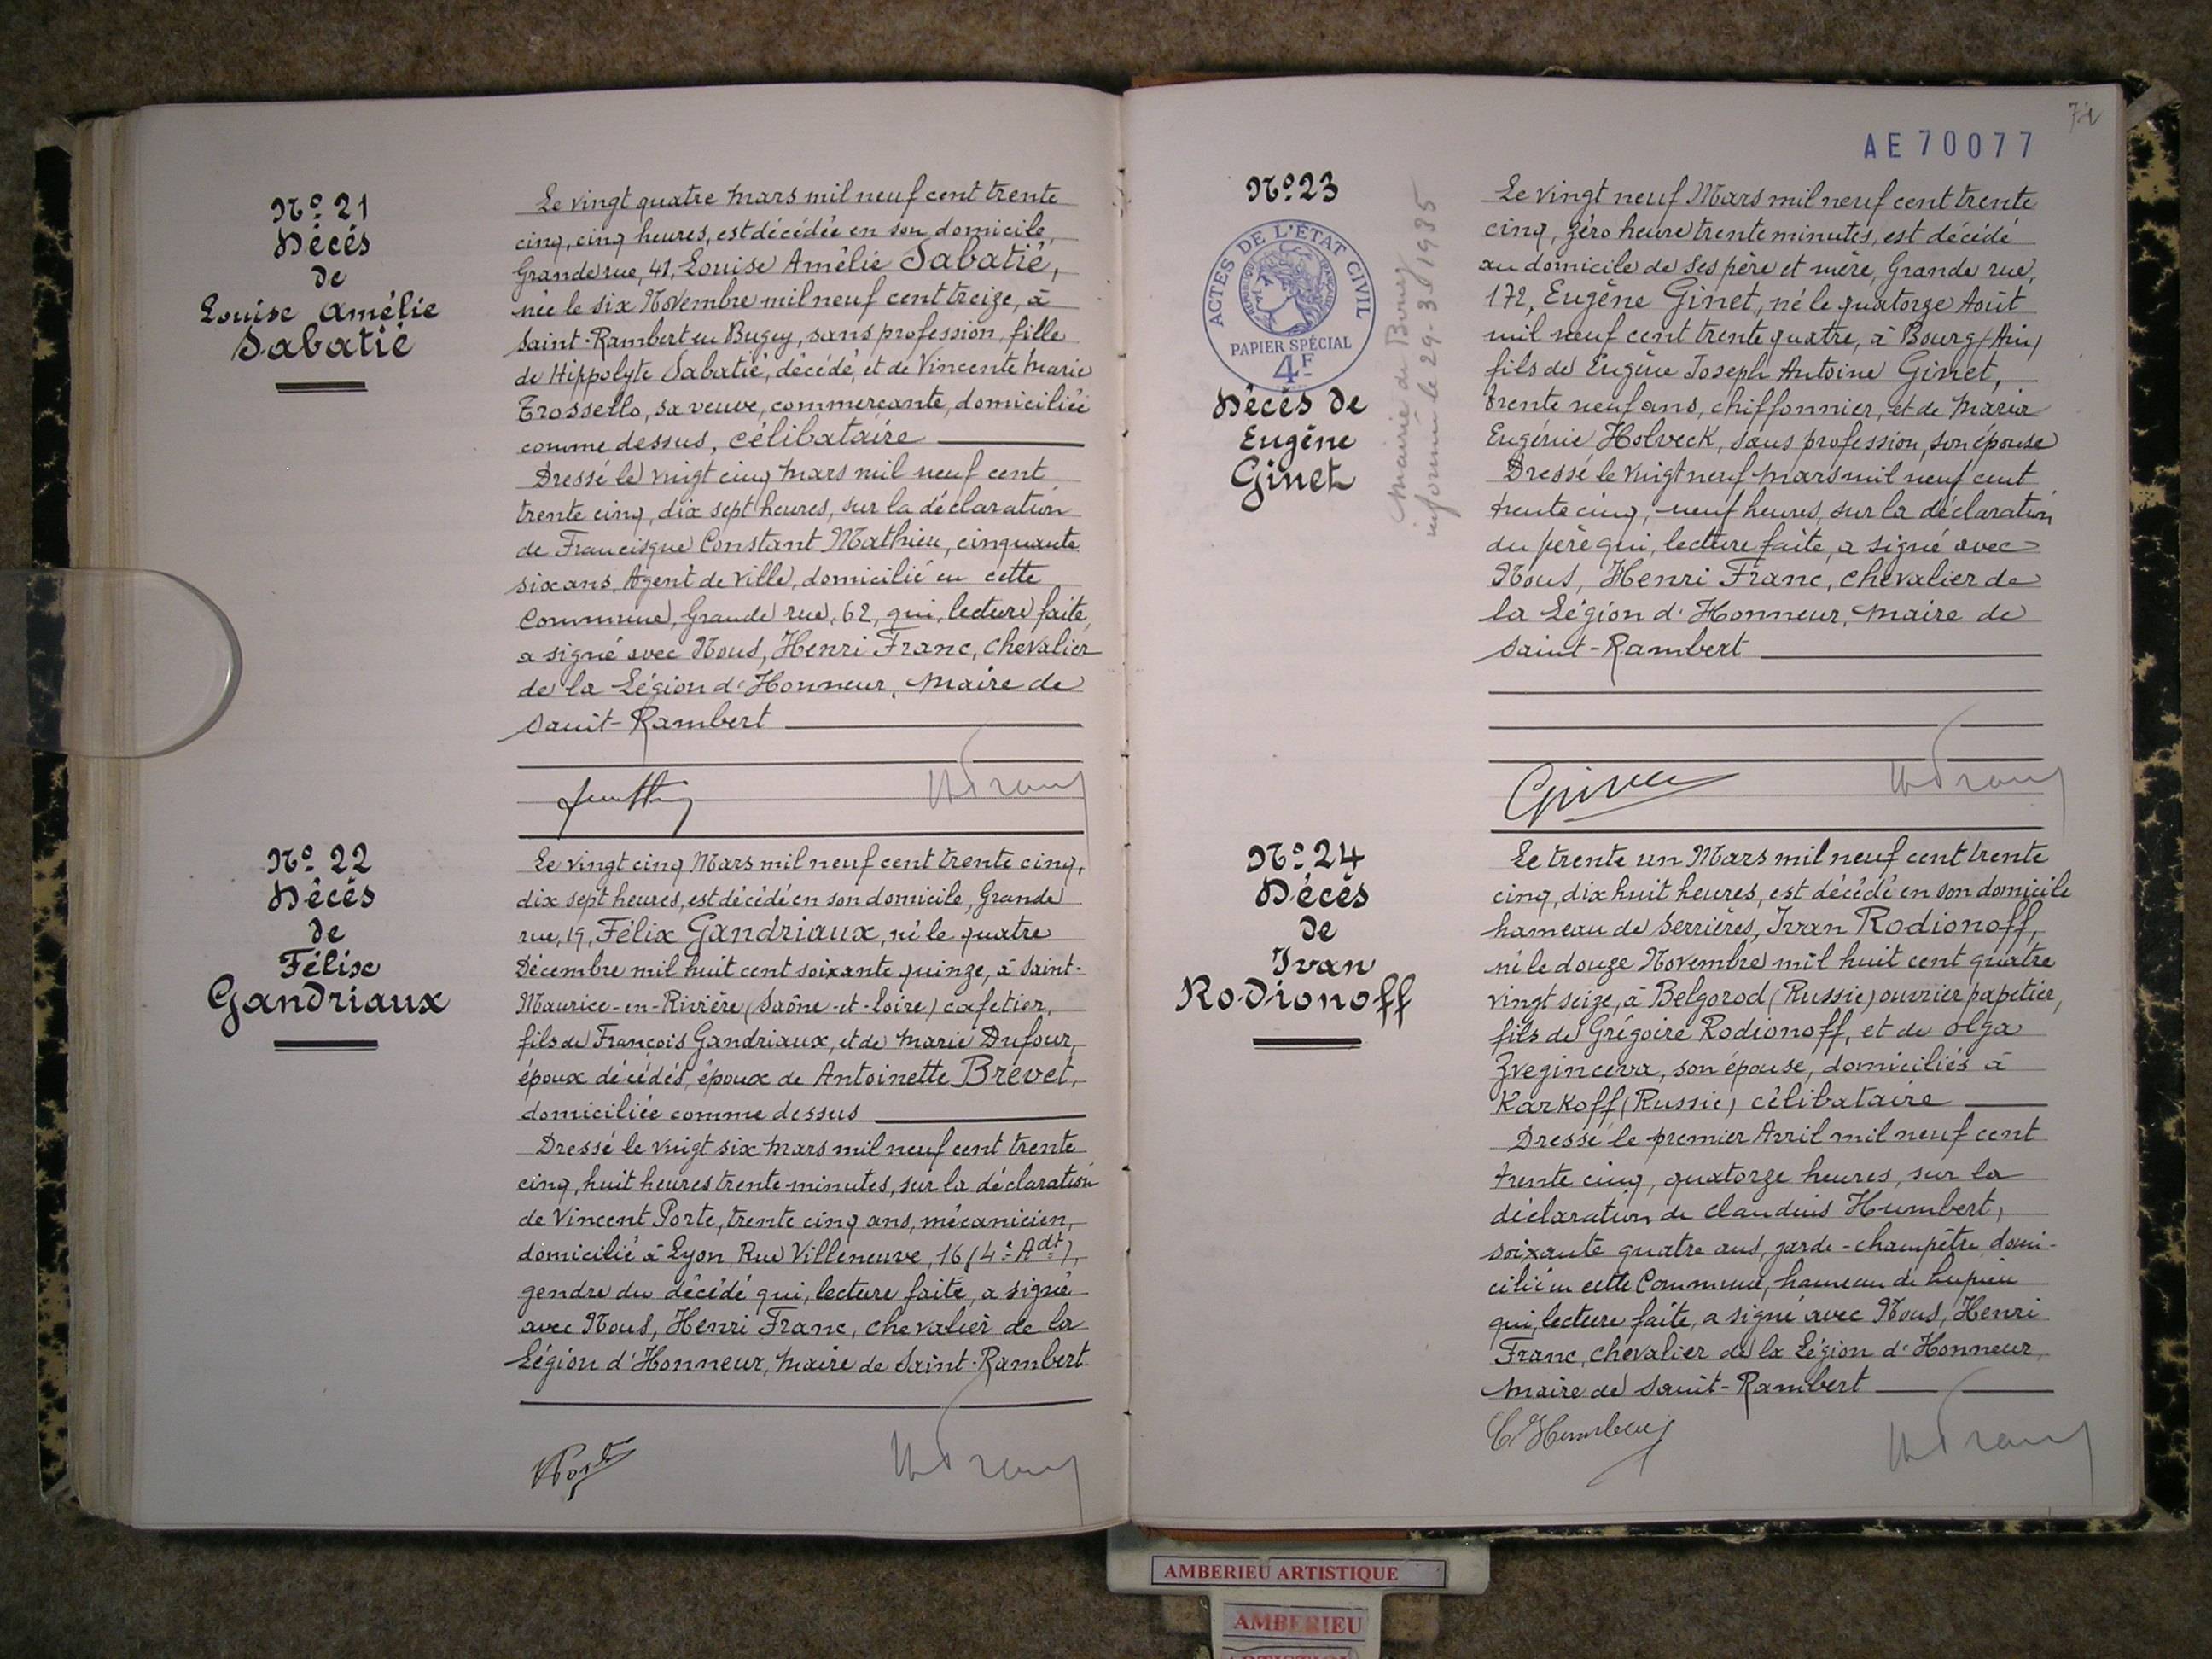 N° 21
Décès
de
Louise Amélie
Sabatié
Le vingt quatre Mars mil neuf cent trente
cinq, cinq heures, est décédée en son domicile,
Grande rue, 41, Louise Amélie Sabatié,
née le six Novembre mil neuf cent treize, à
Saint-Rambert en Bugey, sans profession, fille
de Hippolyte Sabatié, décédé, et de Vincente Marie
Trossello, sa veuve, commerçante, domiciliée
comme dessus, célibataire
Dressé le vingt cinq Mars mil neuf cent
trente cinq, dix sept heures, sur la déclaration
de Francisque Constant Mathieu, cinquante
six ans, Agent de Ville, domicilié en cette
Commune, Grande rue, 62, qui, lecture faite,
a signé avec Nous, Henri Franc, Chevalier
de la Légion d'Honneur, Maire de
Saint-Rambert
N° 22
Décès
de
Félix
Gandriaux
Le vingt cinq Mars mil neuf cent trente cinq,
dix sept heures, est décédé en son domicile, Grande
rue, 19, Félix Gandriaux, né le quatre
Décembre mil huit cent soixante quinze, à Saint-
Maurice-en-Rivière (Saône-et-Loire) cafetier,
fils de François Gandriaux, et de Marie Dufour,
époux décédés, époux de Antoinette Brevet,
domiciliée comme dessus
Dressé le vingt six Mars mil neuf cent trente
cinq, huit heures trente minutes, sur la déclaration
de Vincent Porte, trente cinq ans, mécanicien,
domicilié à Lyon, Rue Villeneuve, 16 (4e Adt),
gendre du décédé qui, lecture faite, a signé
avec Nous, Henri Franc, Chevalier de la
Légion d'Honneur, Maire de Saint-Rambert
VPorte
72
AE70077
N° 23
ACTES DE L'ÉTAT CIVIL
RÉPUBLIQUE FRANÇAISE
PAPIER SPÉCIAL
4F
Décès de
Eugène
Ginet
Mairie de Bourg
informée le 29-3-1935
Le vingt neuf Mars mil neuf cent trente
cinq, zéro heure trente minutes, est décédé
au domicile de ses père et mère, Grande rue,
172, Eugène Ginet, né le quatorze Août
mil neuf cent trente quatre, à Bourg (Ain)
fils de Eugène Joseph Antoine Ginet,
trente neuf ans, chiffonnier, et de Maria
Eugénie Holveck, sans profession, son épouse
Dressé le vingt neuf Mars mil neuf cent
trente cinq, neuf heures, sur la déclaration
du père qui, lecture faite, a signé avec
Nous, Henri Franc, Chevalier de
la Légion d'Honneur, Maire de
Saint-Rambert
Ginet
N° 24
Décès
de
Ivan
Rodionoff
Le trente un Mars mil neuf cent trente
cinq, dix huit heures, est décédé en son domicile
hameau de Serrières, Ivan Rodionoff,
né le douze Novembre mil huit cent quatre
vingt seize, à Belgorod (Russie) ouvrier papetier,
fils de Grégoire Rodionoff, et de Olga
Zveginceva, son épouse, domiciliés à
Karkoff (Russie) célibataire
Dressé le premier Avril mil neuf cent
trente cinq, quatorze heures, sur la
déclaration de Claudius Humbert,
soixante quatre ans, garde-champêtre, domi-
cilié en cette Commune, hameau de Lupieu
qui, lecture faite, a signé avec Nous, Henri
Franc, Chevalier de la Légion d'Honneur,
Maire de Saint-Rambert
C. Humbert
AMBERIEU ARTISTIQUE
AMBERIEU
ARTISTIQUE